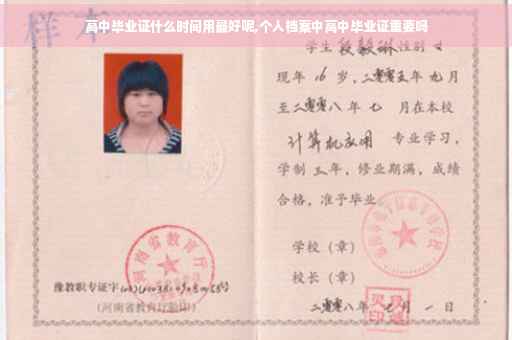 样本
高中毕业证什么时间用最好呢,个人档案中高中毕业证重要吗
学生段毅琳性别女
现年16岁,二零零五年九月
至二零零八年七月在本校
计算机应用 专业学习,
学制三年,修业期满,成绩
合格,准予毕业。
学校(章)
校长(章)
二零零八年七月一日
河南省教育厅
豫教职专证字
(河南省教育厅验印)